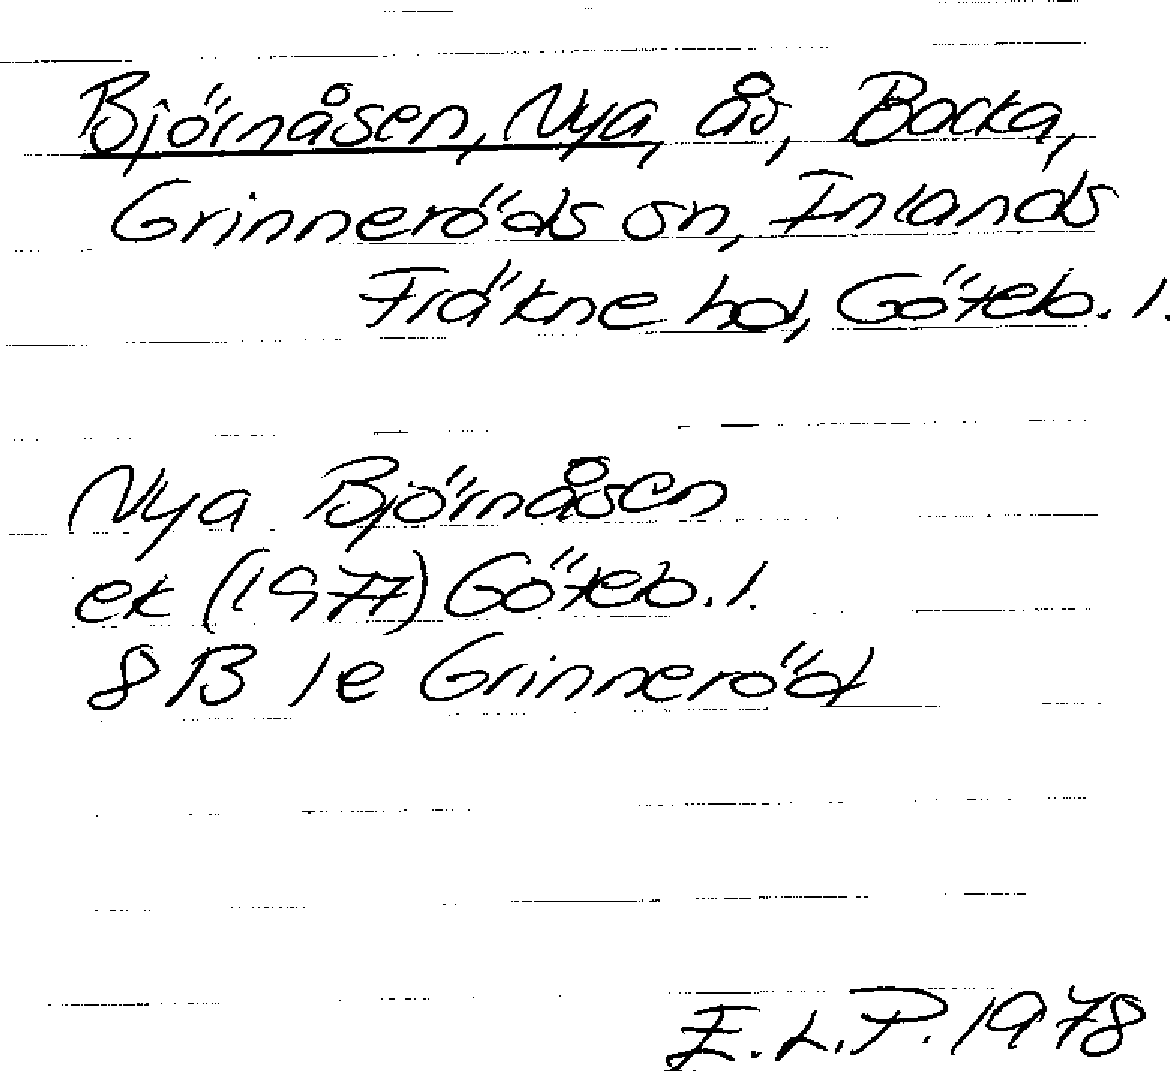 Björnåsen, Nya, ås, Backa,
Grinneröds sn, Inlands
Fräkne hd, Göteb. l.
Nya Björnåsen
ek (1977) Göteb. l.
8B 1e Grinneröd
E.L.P. 1978